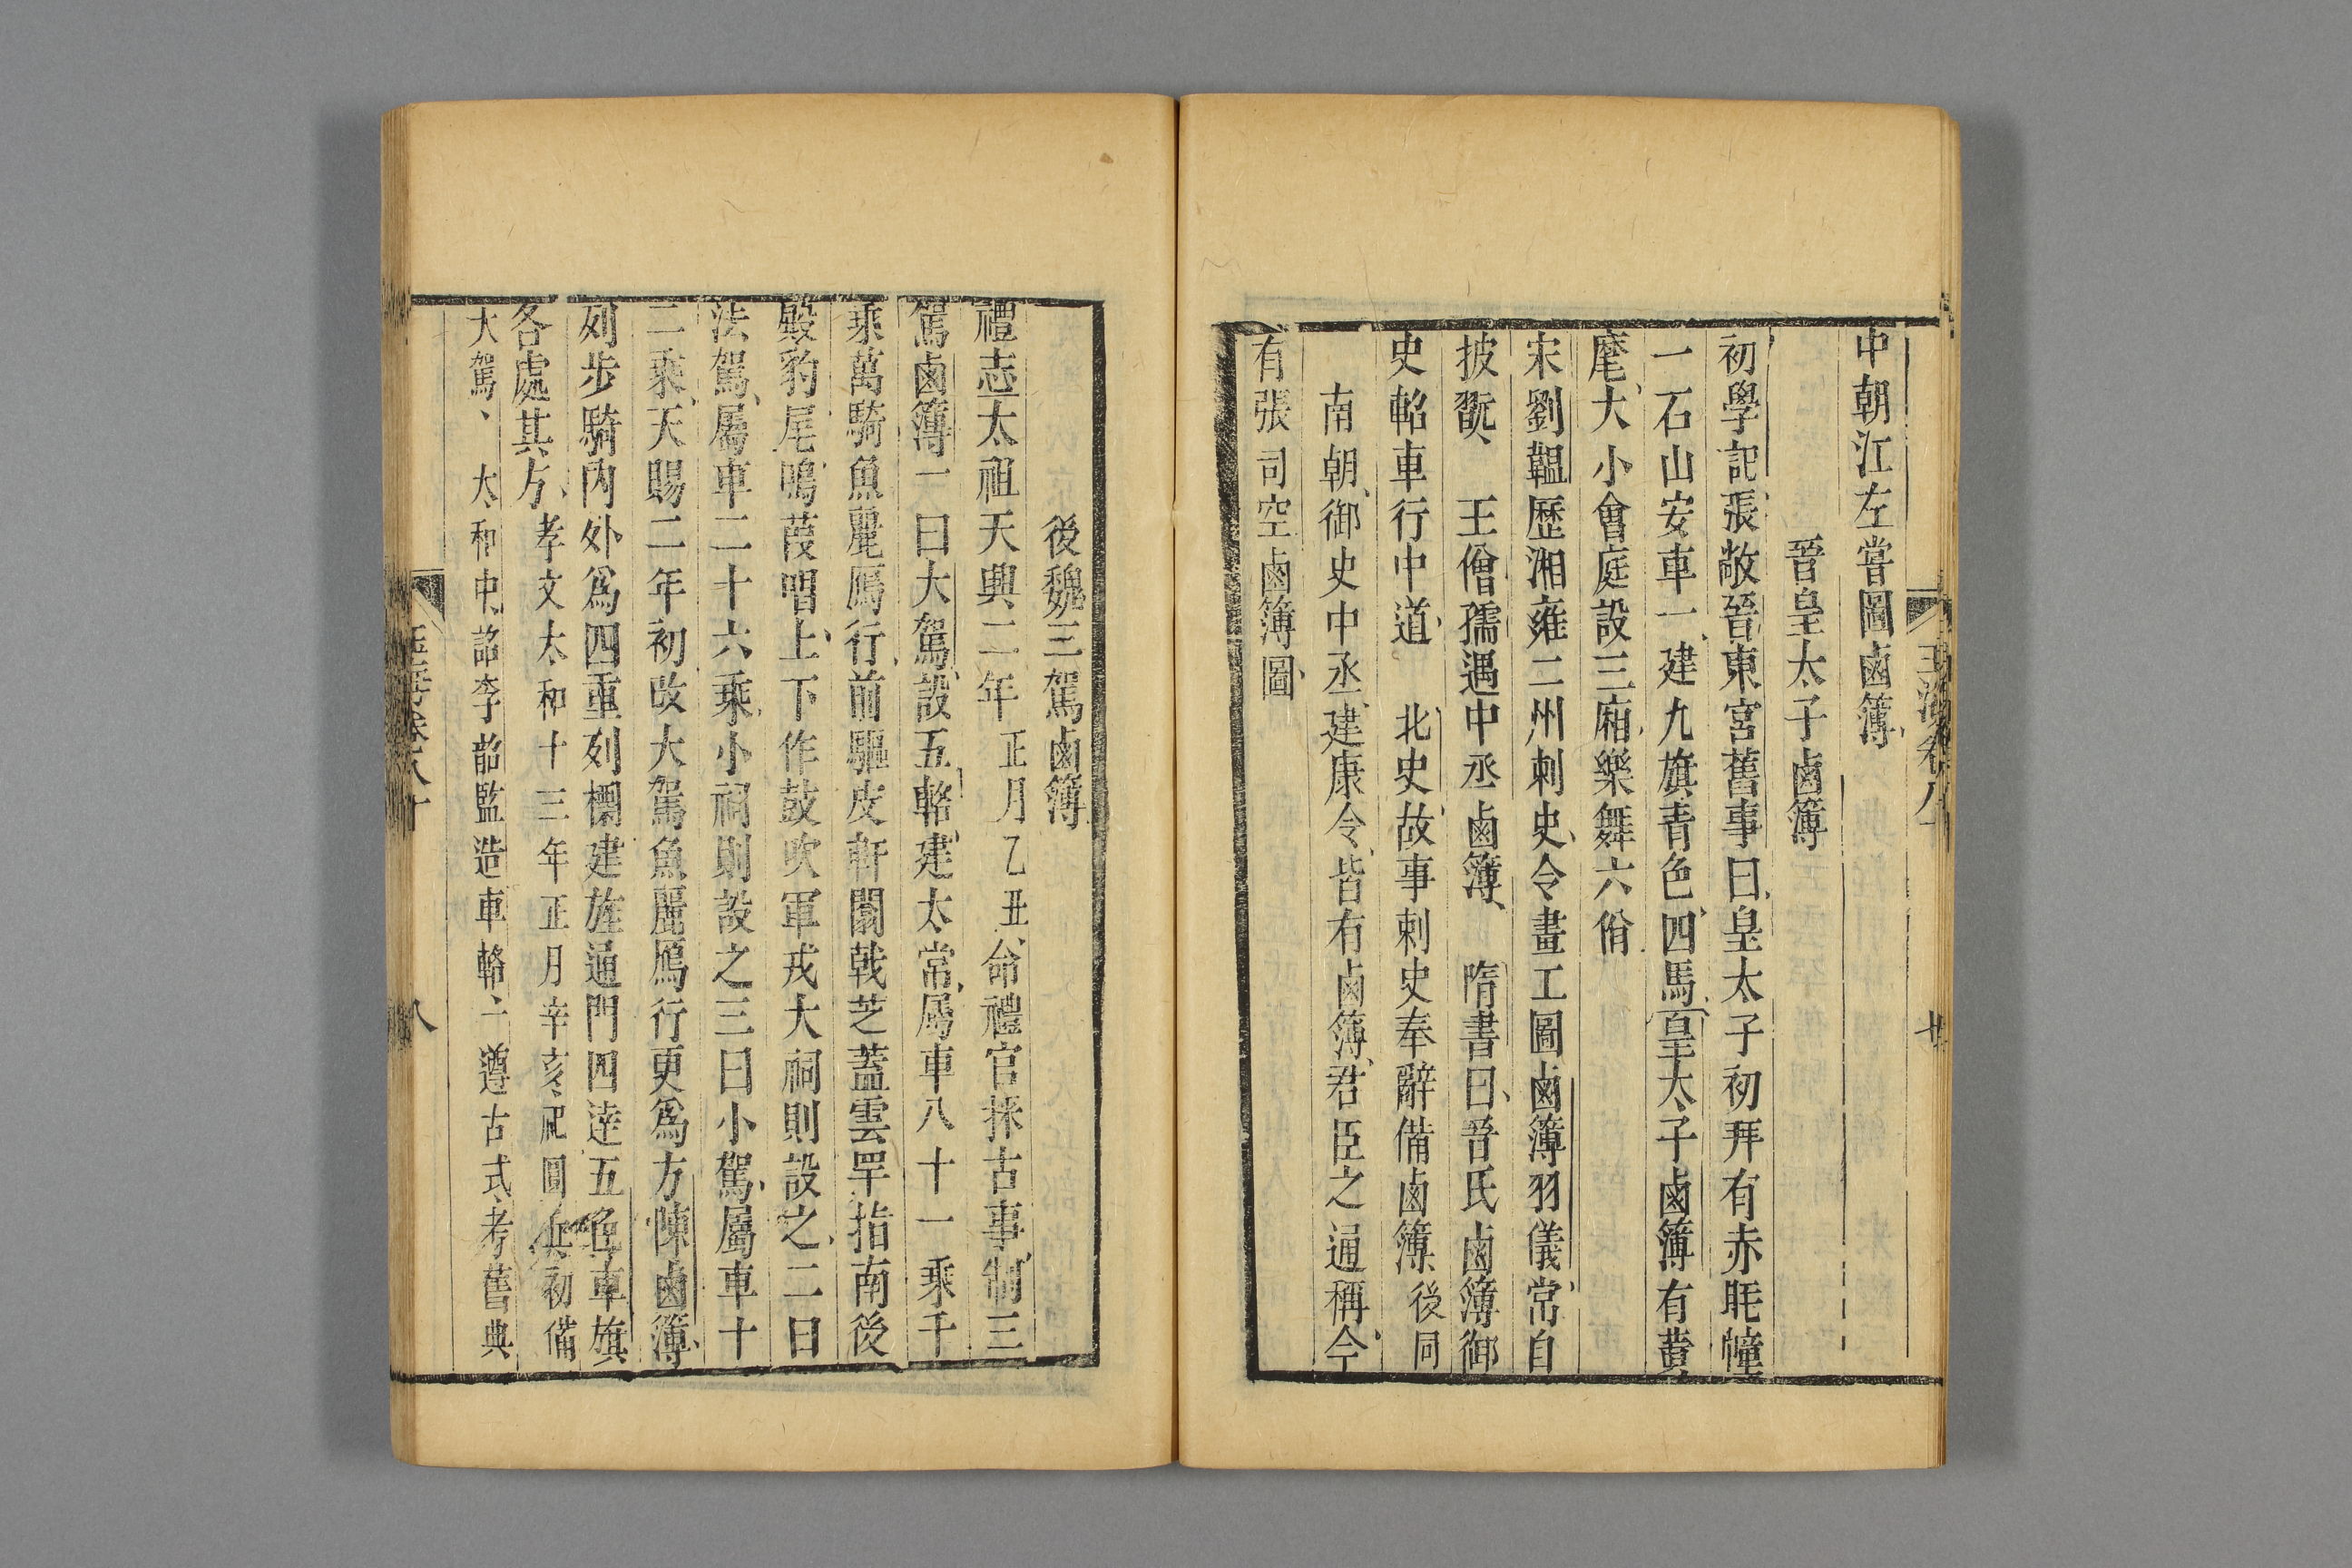 玉海卷八
中朝江左嘗圖鹵簿
晉皇太子鹵簿
初學記張敞晉東宮舊事曰皇太子初拜有赤毦幢
一石山安車一建九旗青色四馬皇太子鹵簿有黃
麾大小會庭設三廂樂舞六佾
宋劉韞歷湘雍二州刺史令畫工圖鹵簿羽儀常自
披翫 王僧孺遇中丞鹵簿 隋書曰晉氏鹵簿御
史軺車行中道 北史故事刺史奉辭備鹵簿 後同
南朝御史中丞建康令皆有鹵簿君臣之通稱今
有張司空鹵簿圖
後魏三駕鹵簿
禮志太祖天興二年正月乙丑命禮官採古事制三
駕鹵簿一曰大駕設五輅建太常屬車八十一乘千
乘萬騎魚麗鴈行前驅皮軒闟戟芝蓋雲罕指南後
殿豹尾鳴葭唱上下作鼓吹軍戎大祠則設之二曰
法駕屬車二十六乘小祠則設之三曰小駕屬車十
二乘天賜二年初改大駕魚麗鴈行更爲方陳鹵簿
列步騎內外爲四重列㯹建旌通門四達五色車旗
各處其方孝文太和十三年正月辛亥祀圓丘初備
大駕 太和中詔李韶監造車輅一遵古式考舊典
卷八十
八